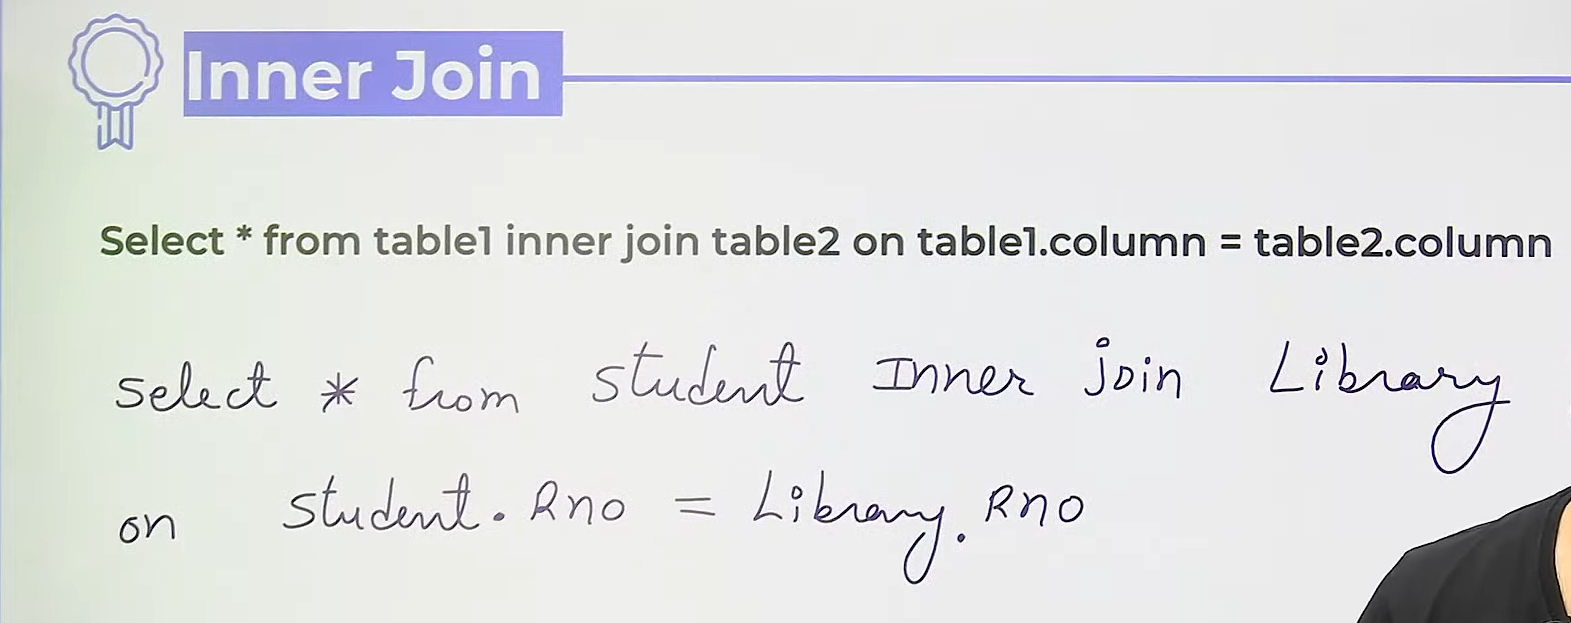 Inner Join
Select * from table1 inner join table2 on table1.column = table2.column
Select * from student Inner join Library
on student. Rno = Library. Rno